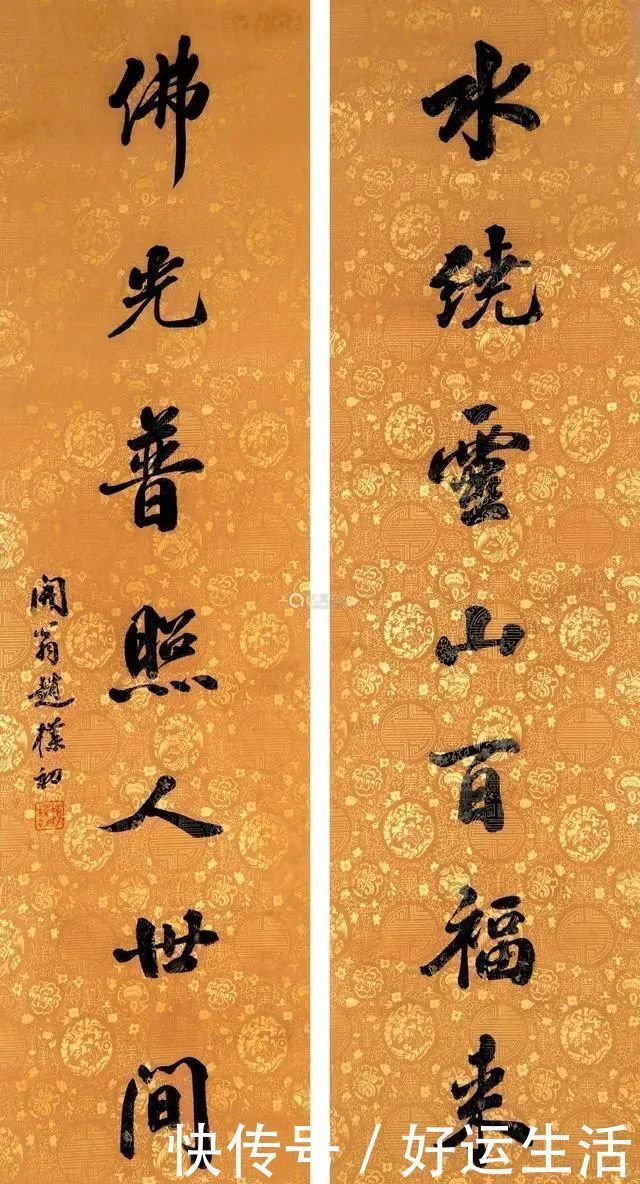 水绕靈山百福来
佛光普照人世间
開翁趙樸初
快传号 / 好运生活